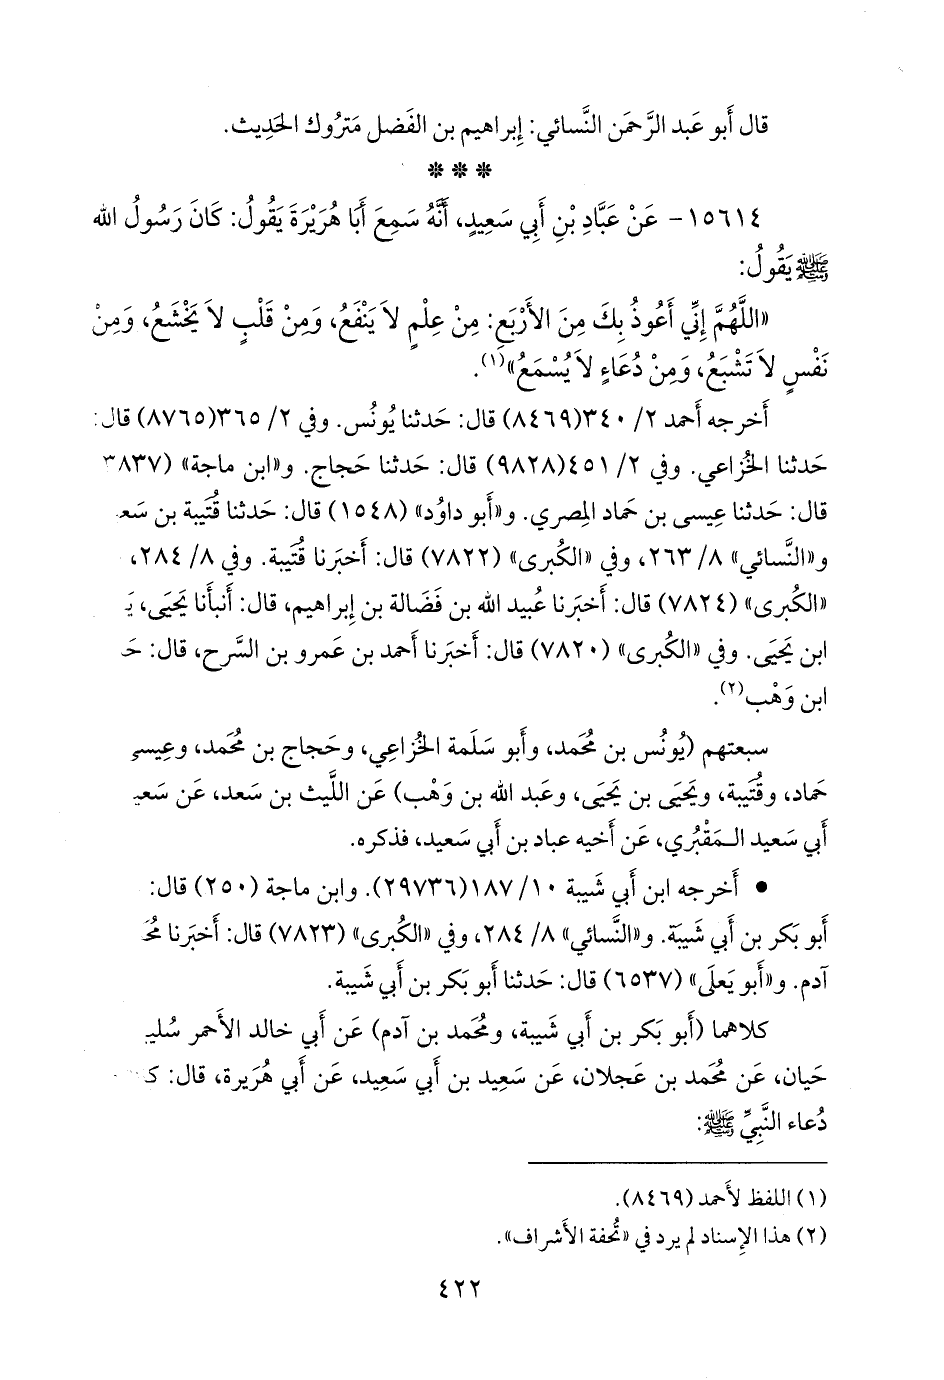 قال أَبو عَبد الرَّحمَن النَّسائي: إِبراهيم بن الفَضل مَتروك الحَدِيث.
* * *
١٥٦١٤- عَنْ عَبَّادِ بْنِ أَبِي سَعِيدٍ، أَنَّهُ سَمِعَ أَبَا هُرَيْرَةَ يَقُولُ: كَانَ رَسُولُ الله
ﷺ يَقُولُ:
«اللَّهُمَّ إِنِّي أَعُوذُ بِكَ مِنَ الأَرْبَعِ: مِنْ عِلْمٍ لاَ يَنْفَعُ، وَمِنْ قَلْبٍ لاَ يَخْشَعُ، وَمِنْ
نَفْسٍ لاَ تَشْبَعُ، وَمِنْ دُعَاءٍ لاَ يُسْمَعُ»(١).
أَخرجه أَحمد ٢/ ٣٤٠(٨٤٦٩) قال: حَدثنا يُونُس. وفي ٢/ ٣٦٥(٨٧٦٥) قال:
حَدثنا الخُزاعي. وفي ٢/ ٤٥١(٩٨٢٨) قال: حَدثنا حَجاج. و«ابن ماجة» (٣٨٣٧
قال: حَدثنا عِيسى بن حَماد المِصري. و«أَبو داوُد» (١٥٤٨) قال: حَدثنا قُتَيبة بن
و«النَّسائي» ٨/ ٢٦٣، وفي «الكُبرى» (٧٨٢٢) قال: أَخبَرنا قُتَيبة. وفي ٨/ ٢٨٤،
«الكُبرى» (٧٨٢٤) قال: أَخبَرنا عُبيد الله بن فَضَالة بن إِبراهيم، قال: أَنبأَنا يَحيَى،
ابن يَحيَى. وفي «الكُبرى» (٧٨٢٠) قال: أَخبَرنا أَحمد بن عَمرو بن السَّرح، قال:
ابن وَهْب(٢).
سبعتهم (يُونُس بن مُحمد، وأَبو سَلَمة الخُزاعي، وحَجاج بن مُحمد، وعِيسى
حَماد، وقُتيبة، ويَحيَى بن يَحيَى، وعَبد الله بن وَهْب) عَن اللَّيث بن سَعد، عَن
أَبي سَعيد الـمَقْبُري، عَن أَخيه عباد بن أَبي سَعيد، فذكره.
• أَخرجه ابن أَبي شَيبة ١٠/ ١٨٧(٢٩٧٣٦). وابن ماجة (٢٥٠) قال:
أَبو بَكر بن أَبي شَيبَة. و«النَّسائي» ٨/ ٢٨٤، وفي «الكُبرى» (٧٨٢٣) قال: أَخبَرنا
آدم. و«أَبو يَعلَى» (٦٥٣٧) قال: حَدثنا أَبو بَكر بن أَبي شَيبة.
كلاهما (أَبو بَكر بن أَبي شَيبة، ومُحمد بن آدم) عَن أَبي خالد الأَحمر
حَيان، عَن مُحمد بن عَجلان، عَن سَعيد بن أَبي سَعيد، عَن أَبي هُرَيرة، قال:
دُعاء النَّبيِّ ﷺ:
(١) اللفظ لأَحمد (٨٤٦٩).
(٢) هذا الإِسناد لم يرد في «تُحفة الأَشراف».
٤٢٢